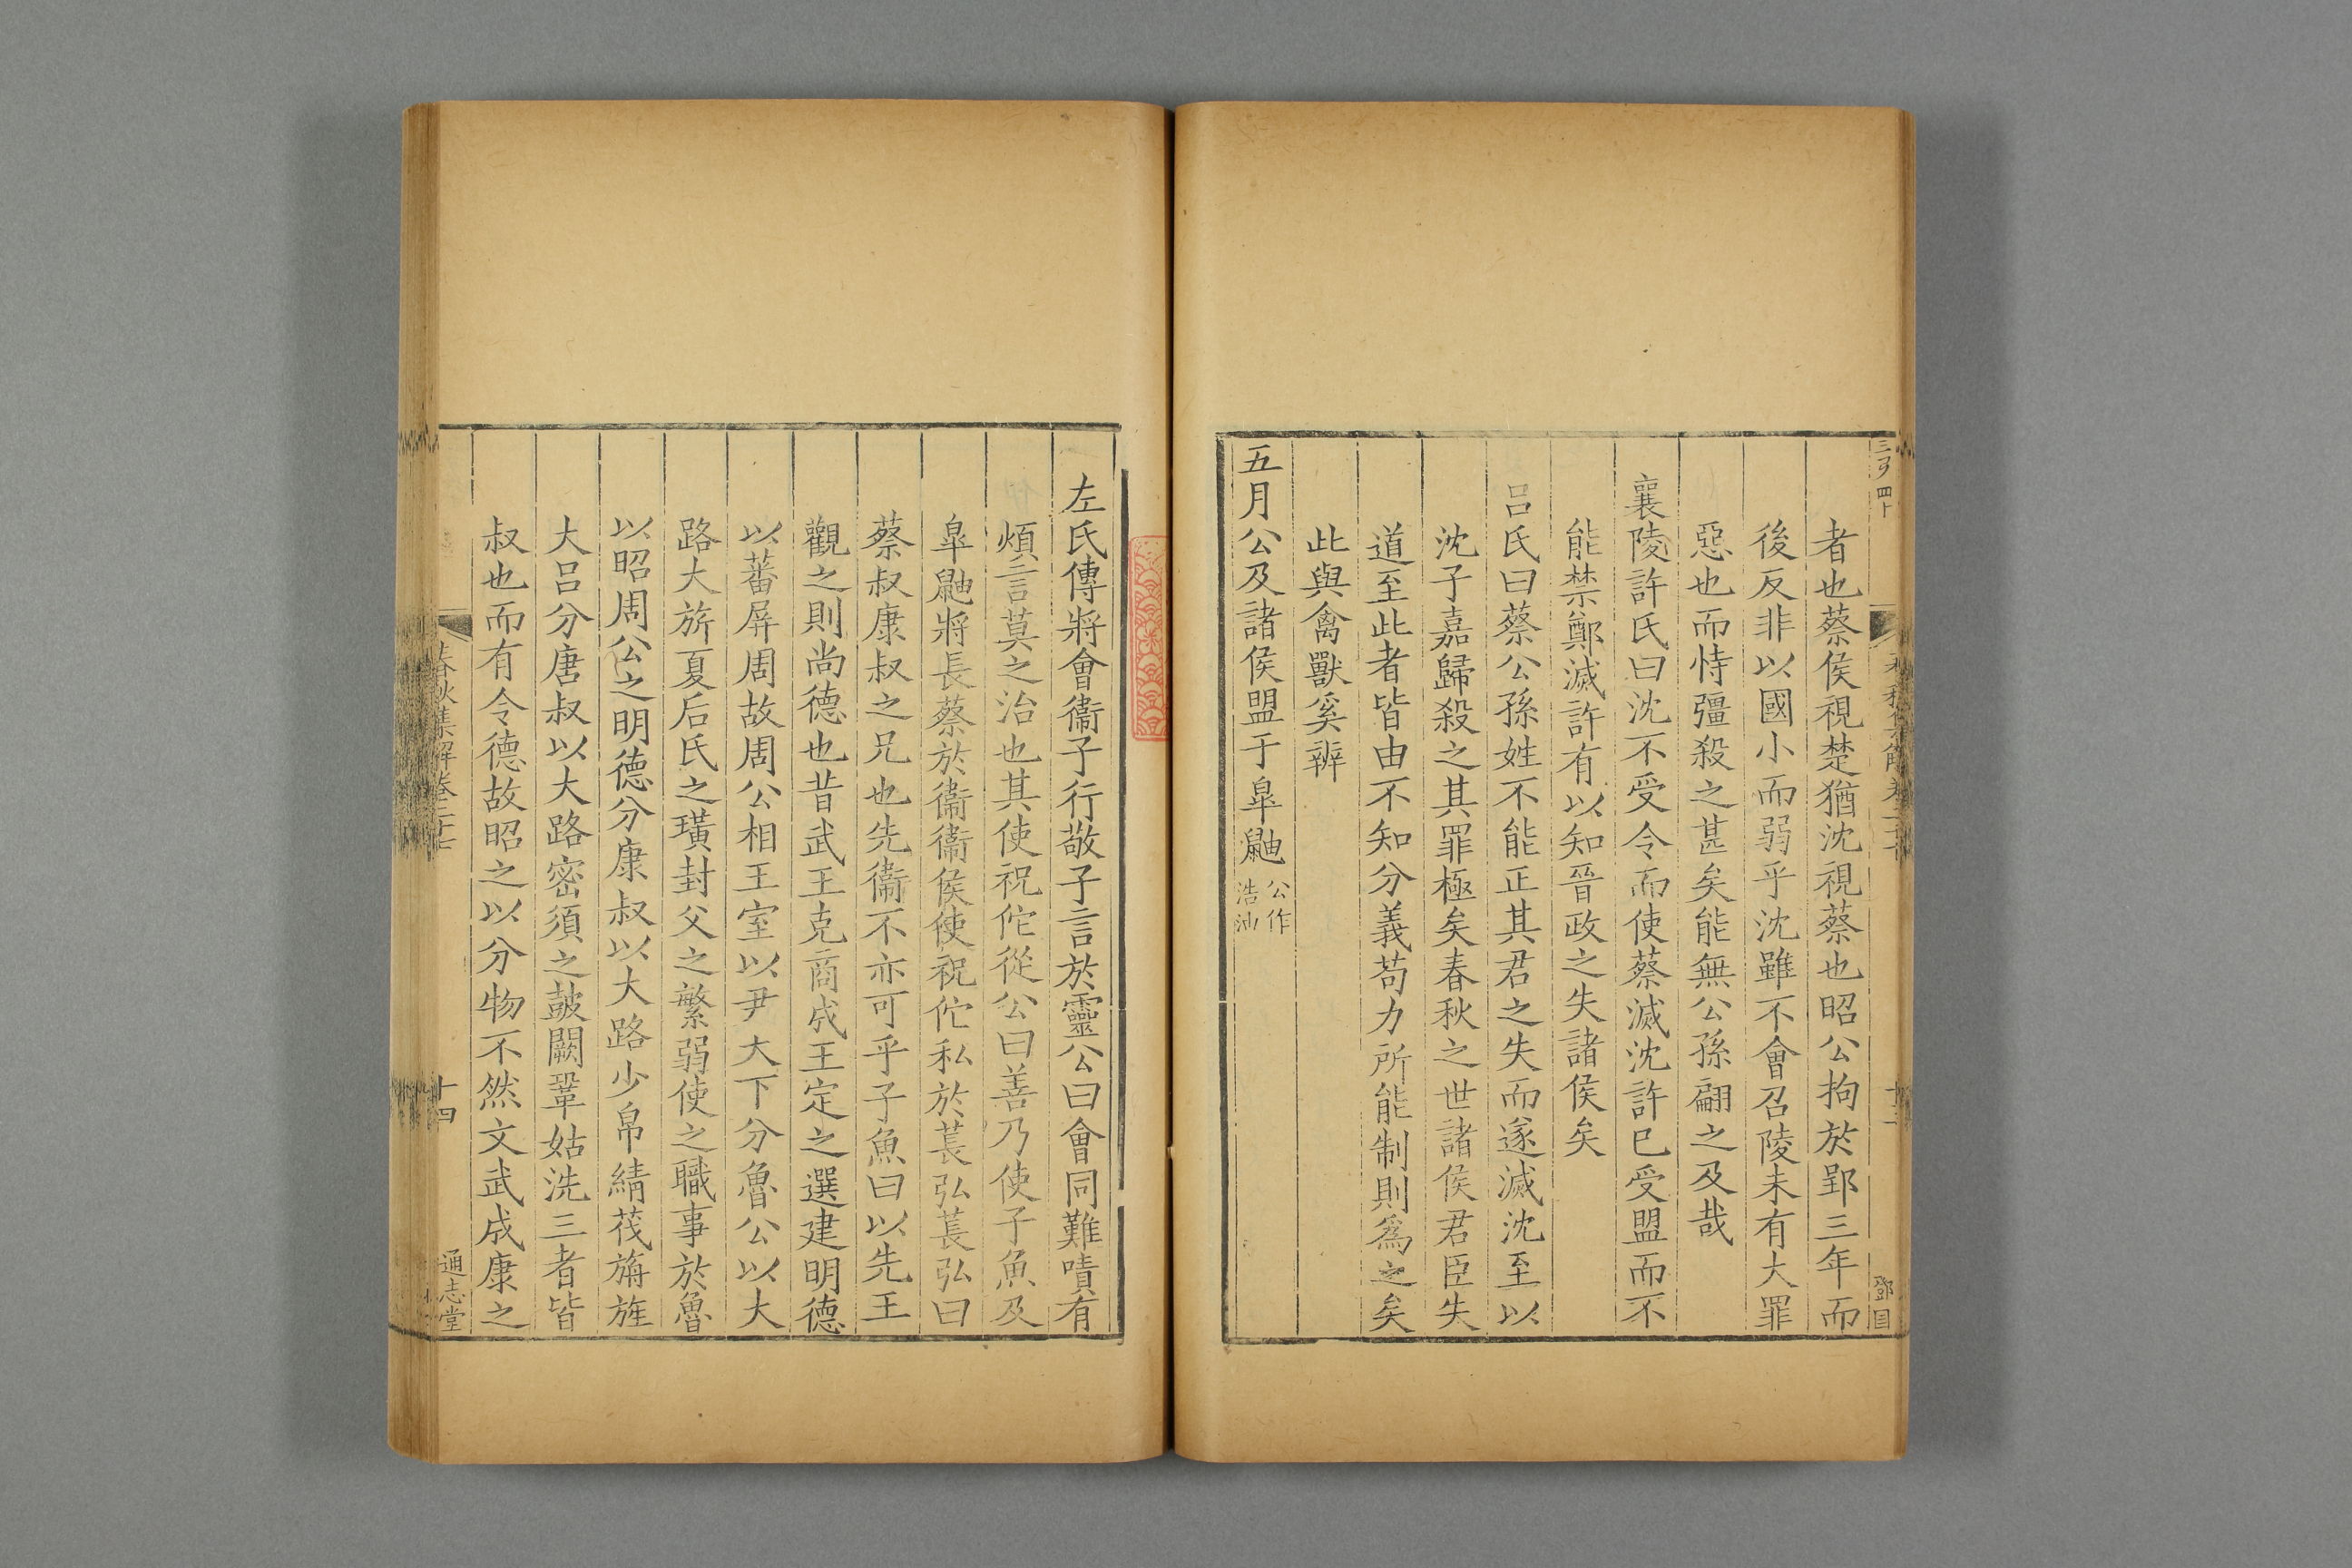 者也蔡侯視楚猶沈視蔡也昭公拘於郢三年而
後反非以國小而弱乎沈雖不會召陵未有大罪
惡也而恃彊殺之甚矣能無公孫翩之及哉
襄陵許氏曰沈不受令而使蔡滅沈許已受盟而不
能禁鄭滅許有以知晉政之失諸侯矣
吕氏曰蔡公孫姓不能正其君之失而遂滅沈至以
沈子嘉歸殺之其罪極矣春秋之世諸侯君臣失
道至此者皆由不知分義苟力所能制則爲之矣
此與禽獸奚辨
五月公及諸侯盟于臯鼬
公作
浩油
左氏傳將會衞子行敬子言於靈公曰會同難嘖有
煩言莫之治也其使祝佗從公曰善乃使子魚及
臯鼬將長蔡於衞衞侯使祝佗私於萇弘萇弘曰
蔡叔康叔之兄也先衞不亦可乎子魚曰以先王
觀之則尚德也昔武王克商成王定之選建明德
以蕃屏周故周公相王室以尹天下分魯公以大
路大旂夏后氏之璜封父之繁弱使之職事於魯
以昭周公之明德分康叔以大路少帛綪茷旃旌
大吕分唐叔以大路密須之鼓闕鞏姑洗三者皆
叔也而有令德故昭之以分物不然文武成康之
春秋集解卷二十七
十四
通志堂